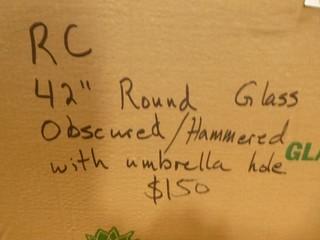 RC
42" Round Glass
Obscured/Hammered
with umbrella hole GLA
$150